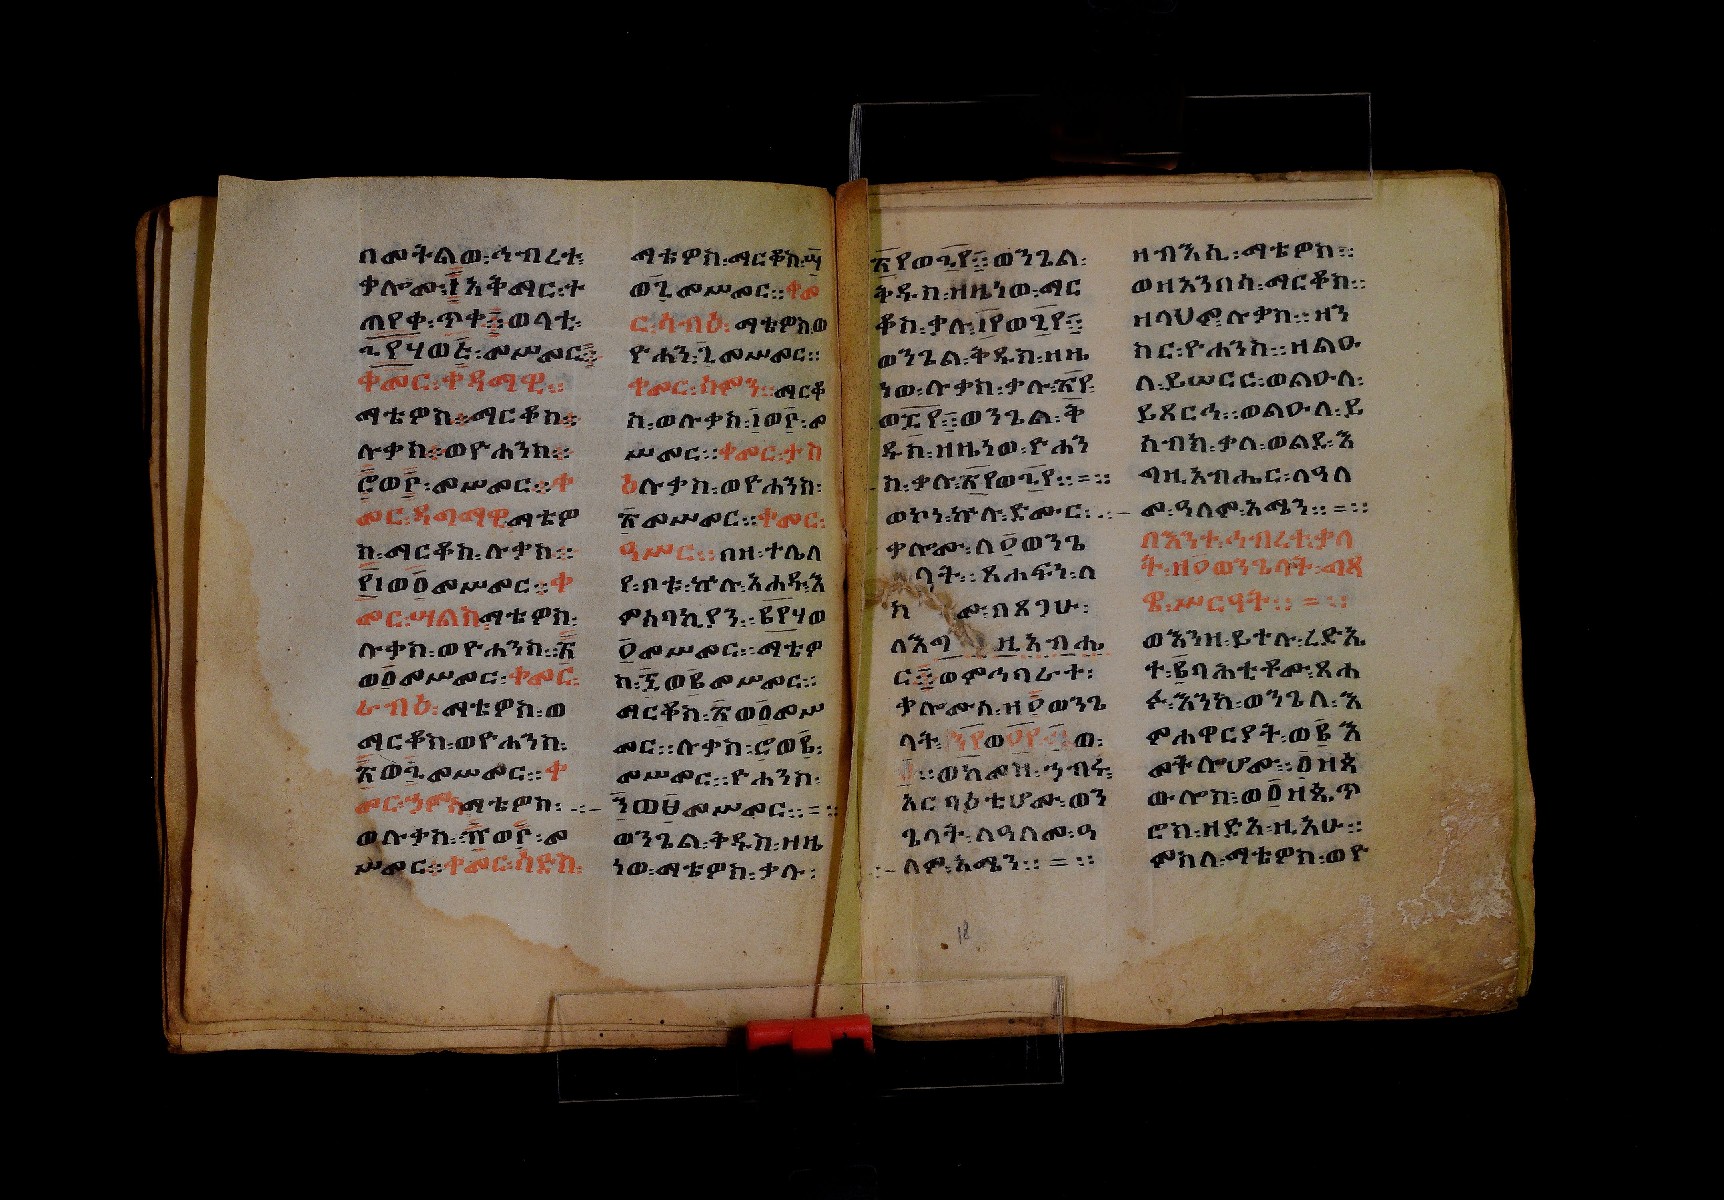 በመትልወ፡ኅብረቱ፡
ቃሎሙ፡፩አቅማር፡ተ
ጠየቀ፡ጥቀ፡፡ወባቲ፡
፪፻፶ወ፭፡መሥመር፡፡
ቀመር፡ቀዳማዊ፡፡
ማቴዎስ፡፡ማርቆስ፡፡
ሉቃስ፡፡ወዮሐንስ፡፡
፸ወ፩፡መሥመር፡፡ቀ
መር፡ዳግማዊ፡ማቴዎ
ስ፡ማርቆስ፡ሉቃስ፡፡
መሥመር፡፡ቀ
መር፡ሣልስ፡ማቴዎስ፡
ሉቃስ፡ወዮሐንስ፡፳
ወ፪መሥመር፡ቀመር፡
ራብዕ፡ማቴዎስ፡ወ
ማርቆስ፡ወዮሐንስ፡
፳ወ፮መሥመር፡፡ቀ
መር፡ኃምስ፡ማቴዎስ፡
ወሉቃስ፡፹ወ፪፡መ
ሥመር፡፡ቀመር፡ሳድስ፡
ማቴዎስ፡ማርቆስ፡፵
ወ፯መሥመር፡፡ቀመ
ር፡ሳብዕ፡ማቴዎስ፡ወ
ዮሐን፡፯መሥመር፡፡
ቀመር፡ስምን፡፡ማርቆ
ስ፡ወሉቃስ፡፲ወ፫፡መ
ሥመር፡፡ቀመር፡ታስ
ዕሉቃስ፡ወዮሐንስ፡
፳መሥመር፡፡ቀመር፡
ዓሥር፡፡በዘ፡ተሌለ
የ፡ቦቱ፡ኵሉ፡አሐዱ፡እ
ምአባኪያን፡፡
መሥመር፡፡ማቴዎ
ስ፡፷ወ፪መሥመር፡፡
ማርቆስ፡፳ወ፩መሥ
መር፡፡ሉቃስ፡፸ወ፪፡
መሥመር፡፡ዮሐንስ፡
፺ወ፯መሥመር፡፡=፡፡
ወንጌል፡ቅዱስ፡ዘዜ
ነወ፡ማቴዎስ፡ቃሉ፡
ወንጌል፡
ቅዱስ፡ዘዜነወ፡ማር
ቆስ፡ቃሉ፡፲፻ወ፯፻፡፡
ወንጌል፡ቅዱስ፡ዘዜ
ነወ፡ሉቃስ፡ቃሉ፡፳፻
ወ፰፻፡፡ወንጌል፡ቅ
ዱስ፡ዘዜነወ፡ዮሐን
ስ፡ቃሉ፡፳፻ወ፪፻፡፡=፡፡
ወኮነ፡ኵሉ፡ድሙር፡
ቃሎሙ፡ለ፬ወንጌ
ላት፡፡ጸሐፍን፡ለ
ክ መ፡በጸጋሁ፡
ለእግ ዚአብሔ
ር፡፡ወምኅባራት፡
ቃሎሙለ፡ዝ፬ወንጌ
ላት፡
፡፡ወከመዝ፡ኅብሩ፡
አርባዕቲሆሙ፡ወን
ጌላት፡ለዓለመ፡ዓ
ለም፡አሜን፡፡=፡፡
ዘብእሲ፡ማቴዎስ፡፡
ወዘአንበሳ፡ማርቆስ፡፡
ዘላህም፡ሉቃስ፡፡ዘን
ስር፡ዮሐንስ፡፡ዘልዑ
ል፡ይሠርር፡ወልዑለ፡
ይጸርኅ፡፡ወልዑለ፡ይ
ሰብክ፡ቃለ፡ወልደ፡እ
ግዚአብሔር፡ለዓለ
መ፡ዓለም፡አሜን፡፡=፡፡
በእንተ፡ኅብረተ፡ቃላ
ት፡ዘ፬ወንጌላት፡ባጻ
ዌ፡ሥርዓት፡፡=፡፡
ወእንዘ፡ይተሉ፡ረድኤ
ተ፡፪ባሕቲቶሙ፡ጸሐ
ፉ፡እንከ፡ወንጌለ፡እ
ምሐዋርያት፡ወ፪እ
መትሎሆሙ፡፡፩ዘጳ
ውሎስ፡ወ፩ዘጴጥ
ሮስ፡ዘድኣ፡ዚአሁ፡፡
ምስለ፡ማቴዎስ፡ወዮ
18